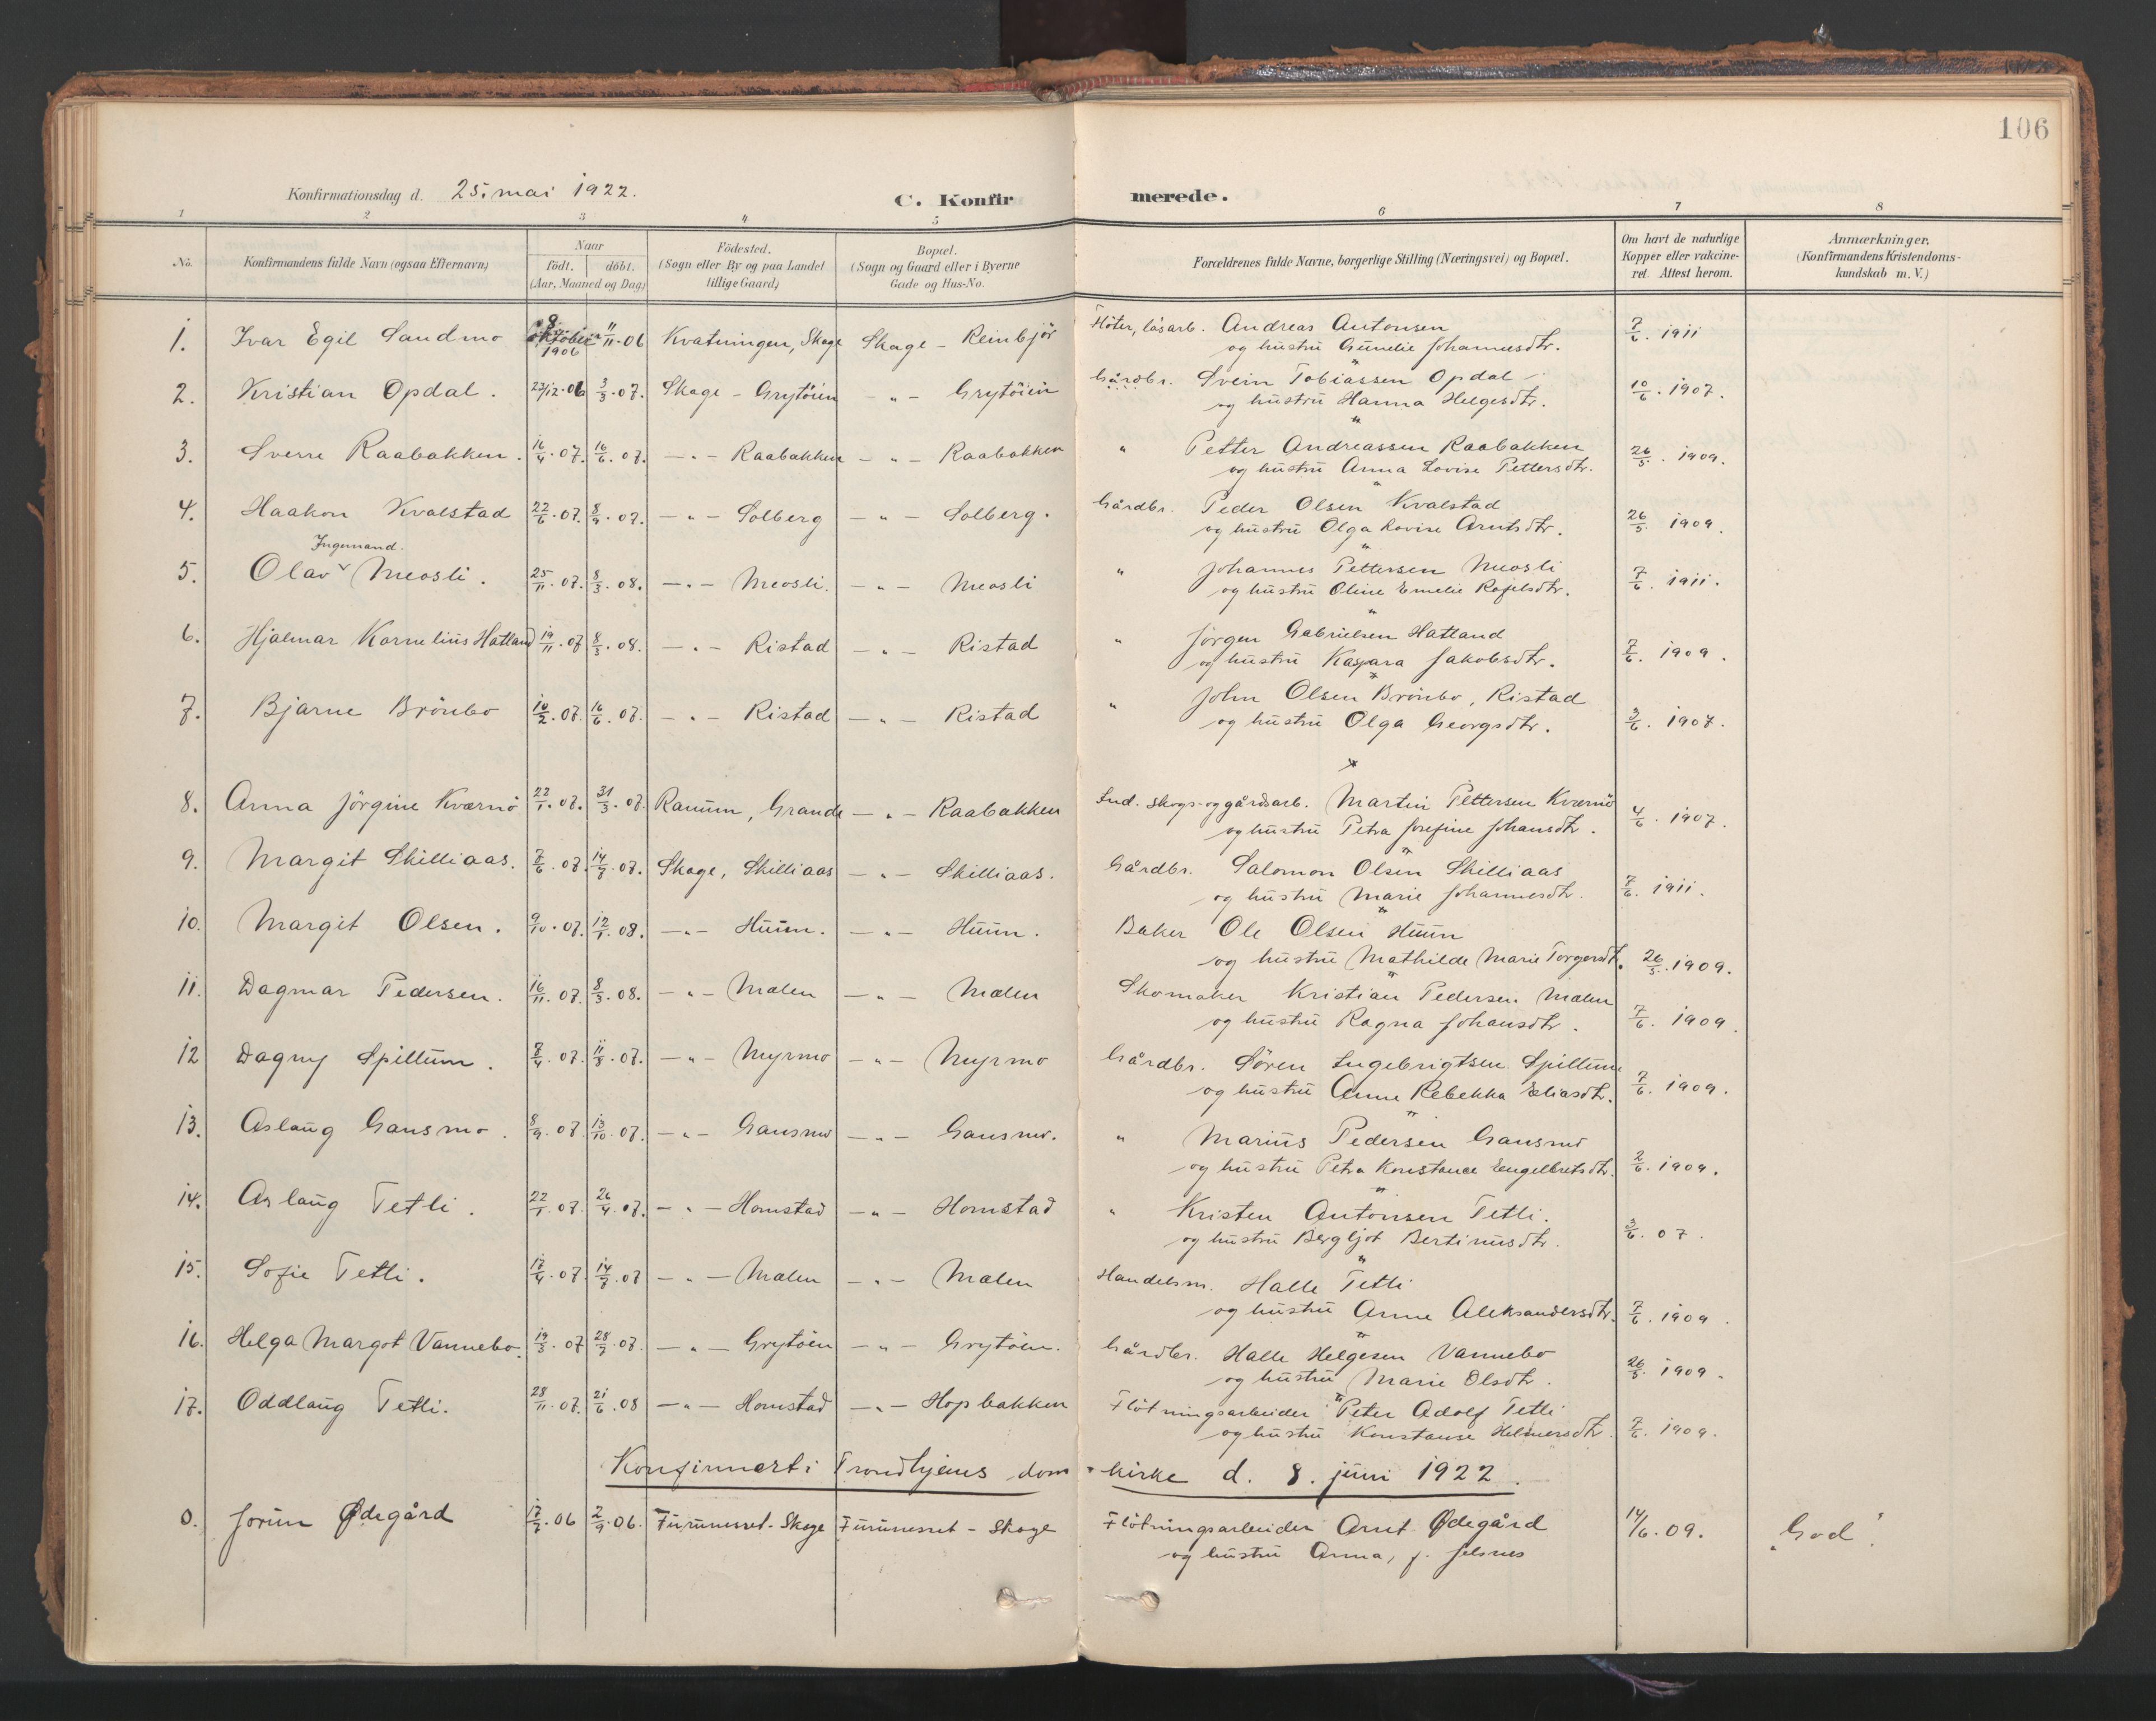 106
Konfirmationsdag d. 25. mai 1922.
C. Konfirmerede.
1 2 3 4 5 6 7 8
No. Konfirmandens fulde Navn (ogsaa Efternavn) Naar födt. döbt. (Aar, Maaned og Dag) Födested. (Sogn eller By og paa Landet tillige Gaard) Bopæl. (Sogn og Gaard eller i Byerne Gade og Hus-No. Forældrenes fulde Navne, borgerlige Stilling (Næringsvei) og Bopæl. Om havt de naturlige Kopper eller vakcineret. Attest herom. Anmærkninger. (Konfirmandens Kristendomskundskab m. V.)
1. Ivar Egil Sandmo 9. oktober 1906 11/11.06 Kvatningen, Skage Skage - Reinbjör Flöter, løsarb. Andreas Antonsen 7/6. 1911
og hustru Gunelie Johannesdtr.
2. Kristian Opdal. 23/12.06 3/3.07. Skage - Grytöien - " - Grytöien Gårdbr. Svein Tobiassen Opdal 10/6. 1907.
og hustru Hanna Helgesdtr.
3. Sverre Raabakken. 16/4.07. 16/6.07. - " - Raabakken - " - Raabakken " Petter Andreassen Raabakken 26/5. 1909.
og hustru Anna Lovise Pettersdtr.
4. Haakon Kvalstad 22/6.07. 8/9.07. - " - Solberg - " - Solberg. Gårdbr. Peder Olsen Kvalstad 26/5. 1909.
og hustru Olga Lovise Arntsdtr.
Ingemand.
5. Olav Meosli. 25/11.07. 8/3.08. - " - Meosli. - " - Meosli " Johannes Pettersen Meosli 7/6. 1911.
og hustru Oline Emelie Rafelsdtr.
6. Hjalmar Kornelius Hatland 19/11.07 8/3.08. - " - Ristad - " - Ristad " Jörgen Gabrielsen Hatland 7/6. 1909.
og hustru Kaspara Jakobsdtr.
7. Bjarne Brönbo 10/2.07. 16/6.07. - " - Ristad - " - Ristad " John Olsen Brönbo, Ristad 3/6. 1907.
og hustru Olga Georgsdtr.
8. Anna Jörgine Kværnö 22/1.07. 31/3.07. Ranum, Grande - " - Raabakken Ind. skogs- og gårdsarb. Martin Pettersen Kværnö 4/6. 1907.
og hustru Petra Josefine Johansdtr.
9. Margit Skilliaas. 7/6.07. 14/7.07. Skage, Skilliaas - " - Skilliaas. Gårdbr. Salomon Olsen Skilliaas 7/6. 1911.
og hustru Marie Johannesdtr.
10. Margit Olsen. 9/10.07. 12/1.08. - " - Huun. - " - Huun. Baker Ole Olsen Huun
og hustru Mathilde Marie Torgersdtr. 26/5. 1909.
11. Dagmar Pedersen. 16/11.07. 8/3.08. - " - Mælen - " - Mælen Skomaker Kristian Pedersen Mælen
og hustru Ragna Johansdtr. 7/6. 1909.
12 Dagny Spillum. 7/4.07. 11/8.07. - " - Myrmo - " - Myrmo Gårdbr. Sören Ingebrigtsen Spillum
og hustru Anne Rebekka Eliasdtr. 7/6. 1909.
13. Aslaug Gansmo. 8/9.07 13/10.07. - " - Gansmo - " - Gansmo. " Marius Pedersen Gansmo
og hustru Petra Konstance Engelbretsdtr. 2/6. 1909.
14. Aslaug Tetli. 22/1.07. 26/4.07. - " - Homstad - " - Homstad " Kristen Antonsen Tetli. 3/6. 07.
og hustru Bergljot Bertinusdtr.
15. Sofie Tetli. 17/4.07. 14/7.07 - " - Mælen - " - Mælen Handelsm. Halle Tetli
og hustru Anne Aleksandersdtr. 7/6. 1909.
16. Helga Margot Vannebo. 19/3.07 28/7.07. - " - Grytöien - " - Grytöien. Gårdbr. Halle Helgesen Vannebo 26/5. 1909.
og hustru Marie Olsdtr.
17. Oddlaug Tetli. 28/11.07. 21/6.08 - " - Homstad - " - Hopbakken Flötningsarbeider Peter Adolf Tetli 7/6. 1909.
og hustru Konstanse Helmersdtr.
Konfirmert i Trondhjems domkirke d. 8. juni 1922.
0. Jorun Ødegård 17/7.06 2/9.06. Furunesset - Skage Furunesset - Skage Flötningsarbeider Arnt Ødegård 14/6.09. "God".
og hustru Anna, f. Jelsnes